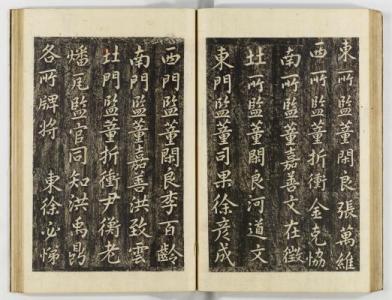 東所監董閑良張萬維
西所監董折衝金克恊
南所監董嘉善文在徵
北所監董閑良河道文
東門監董司果徐彦成
西門監董閑良李百齡
南門監董嘉善洪致雲
北門監董折衝尹衡老
燔瓦監官同知洪禹錫
各所牌将 東徐必悌